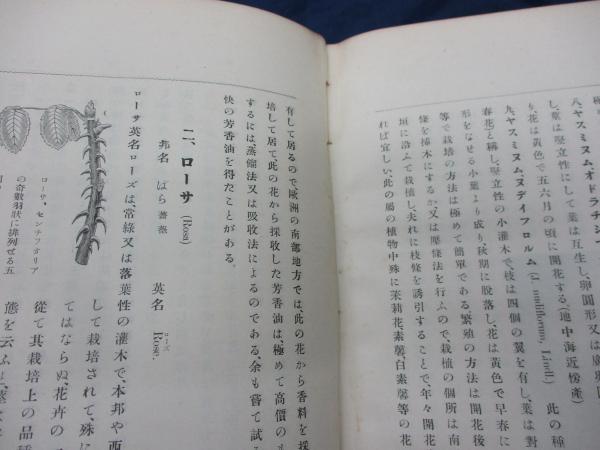 八、ヤスミヌム、オドラチシ
し、葉は互生し、卵圓形又は廣
り、花は黃色で五六月の頃に開花する(地中海近傍產)
九、ヤスミヌム、ヌデイフロルム (J. nudiflorum, Lindl) 此の種
春花)と稱し、堅立性の小灌木で、枝は四個の翼を有し、葉は對
形をなせる小葉より成り、秋期に脫落し、花は黃色で早春に
等で栽培の方法は極めて簡單である。繁殖の方法は開花後
條を挿木にするか又は壓條法を行ふので、栽植の個所は南
垣に沿ふて栽植し、夫れに枝條を誘引することで、年々開花
れば宜しい、此の屬の植物中殊に茉莉花、素馨、白素馨等の花
有して居るので歐洲の南部地方では、此の花から香料を採
培して居て、此の花から採收した芳香油は、極めて高價のも
するには、蒸餾法又は吸收法によるのである、余も嘗て試
快の芳香油を得たことがある。
二、ローサ (Rosa)
邦名 ばら 薔薇 英名 Rose ローズ
ローサ英名ローズは、常綠又は落葉性の灌木で、本邦や西
して栽培されて、殊に
てはならぬ、花卉の
從て其栽培上の品種
態を云ふは
ローサ、センチフオリア
の奇數羽狀に排列せる五